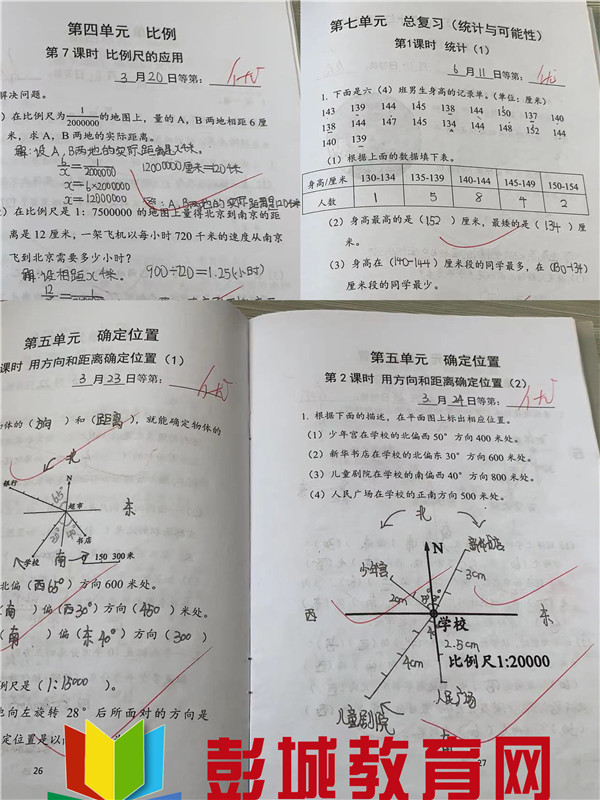 第四单元 比例
第7课时 比例尺的应用
3月20日等第:
解决问题。
)在比例尺为1/2000000的地图上,量的A,B两地相距6厘
米,求A,B两地的实际距离。
解:设A,B两地的实际距离是x千米。
6/x=1/2000000 12000000厘米=120千米
x=6×2000000
x=12000000
答:A,B两地的实际距离是120千米
)在比例尺是1:7500000的地图上量得北京到南京的距
离是12厘米,一架飞机以每小时720千米的速度从南京
飞到北京需要多少小时?
解:设相距x千米。 900÷720=1.25(小时)
第七单元 总复习(统计与可能性)
第1课时 统计(1)
6月11日等第:
1. 下面是六(4)班男生身高的记录单。(单位:厘米)
143 139 144 145 138 144 150 137 140
138 144 147 135 134 144 148 152 144
140 139
(1)根据上面的数据填下表。
身高/厘米 130-134 135-139 140-144 145-149 150-154
人数 1 5 8 4 2
(2)身高最高的是(152)厘米,最矮的是(134)厘
米。
(3)身高在(140-144)厘米段的同学最多,在(130-134)
厘米段的同学最少。
第五单元 确定位置
课时 用方向和距离确定位置(1)
3月23日等第:
物体的(方向)和(距离),就能确定物体的
北
银行
N
65°
超市
东
30° 40°
书店
学校
南
150 300米
北偏(西65°)方向600米处。
(南)偏(西30°)方向(450)米处。
(南)偏(东40°)方向(300)
例尺是(1:15000)。
向左旋转28°后所面对的方向是
定位置是以
26
第五单元 确定位置
第2课时 用方向和距离确定位置(2)
3月24日等第:
1. 根据下面的描述,在平面图上标出相应位置。
(1)少年宫在学校的北偏西50°方向400米处。
(2)新华书店在学校的北偏东30°方向600米处。
(3)儿童剧院在学校的南偏西40°方向800米处。
(4)人民广场在学校的正南方向500米处。
北
N
新华书店
少年宫
3cm
2cm
西
东
学校
2.5cm
4cm
比例尺1:20000
人民广场
儿童剧院
南
27
彭城教育网